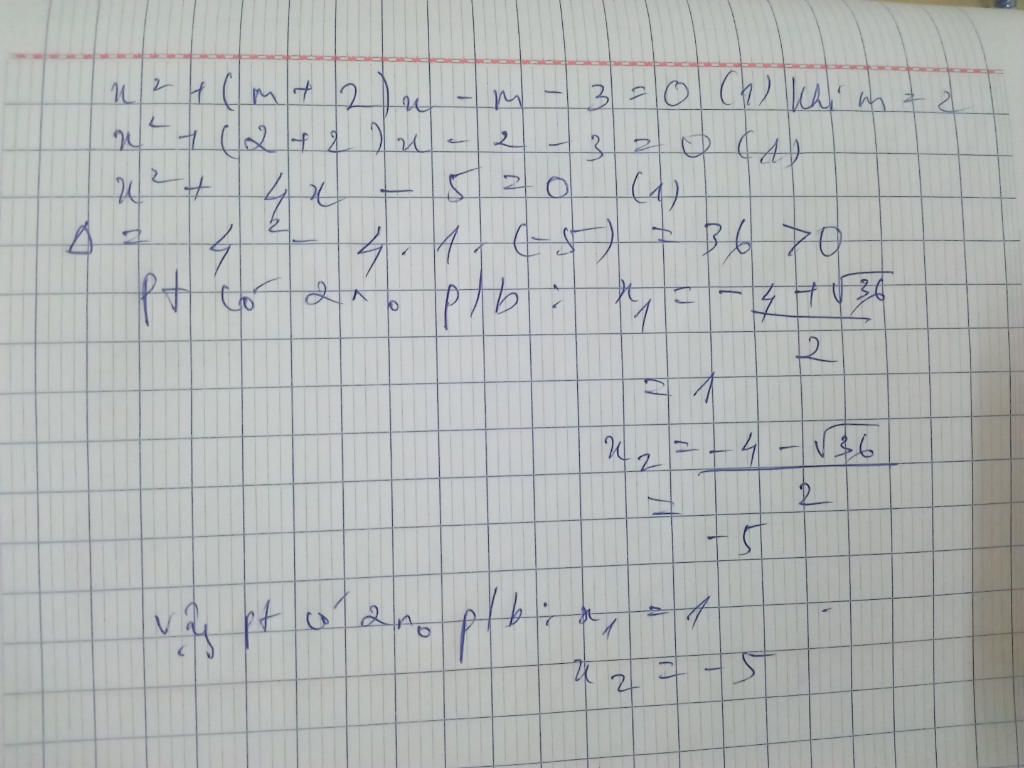 x² + (m + 2)x - m - 3 = 0 (1) khi m = 2
x² + (2 + 2)x - 2 - 3 = 0 (1)
x² + 4x - 5 = 0 (1)
Δ = 4² - 4 . 1 . (-5) = 36 > 0
pt có 2 n₀ p/b : x₁ = -4 + √36
2
= 1
x₂ = -4 - √36
2
= -5
vậy pt có 2 n₀ p/b : x₁ = 1
x₂ = -5